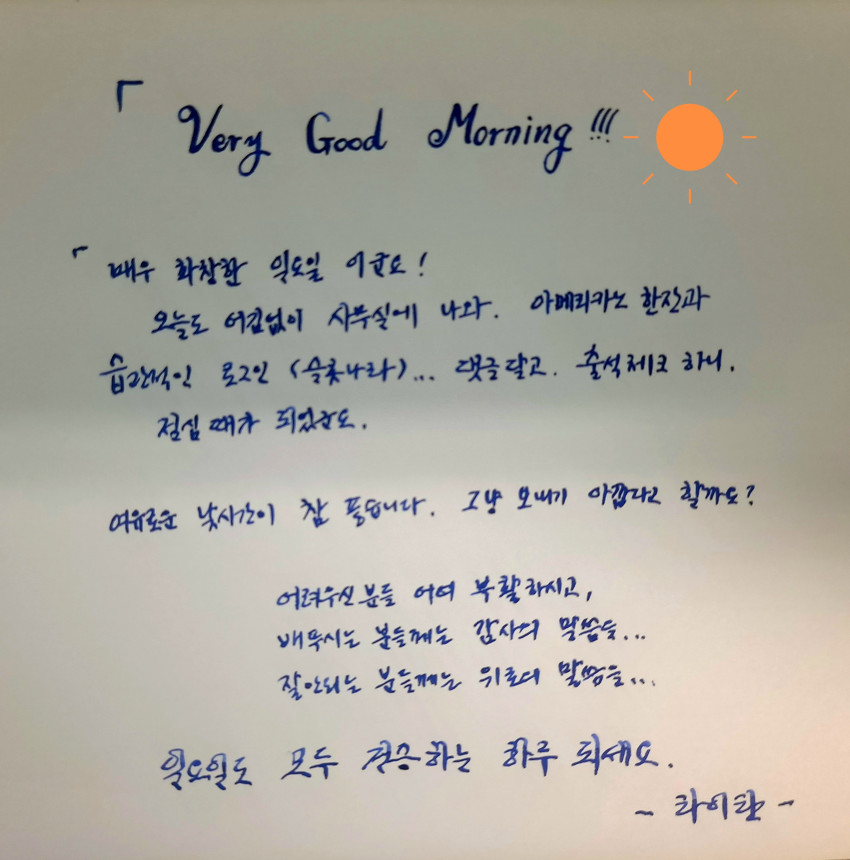 「 Very Good Morning !!!
「 매우 화창한 일요일 이군요!
오늘도 어김없이 사무실에 나와. 아메리카노 한잔과
습관적인 로그인 (슬롯나라)... 댓글달고. 출석체크 하니.
점심 때가 되었군요.
여유로운 낮시간이 참 좋습니다. 그냥 보내기 아깝다고 할까요?
어려우신분들 어여 부활하시고,
베푸시는 분들께는 감사의 말씀을...
잘안되는 분들께는 위로의 말씀을...
일요일도 모두 건승하는 하루 되세요.